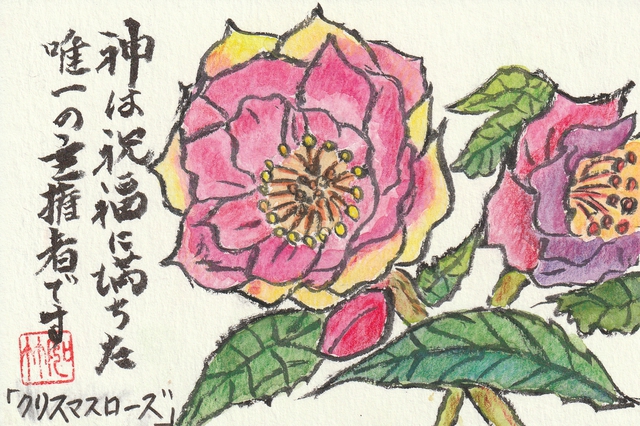 神は祝福に満ちた
唯一の主権者です
「クリスマスローズ」